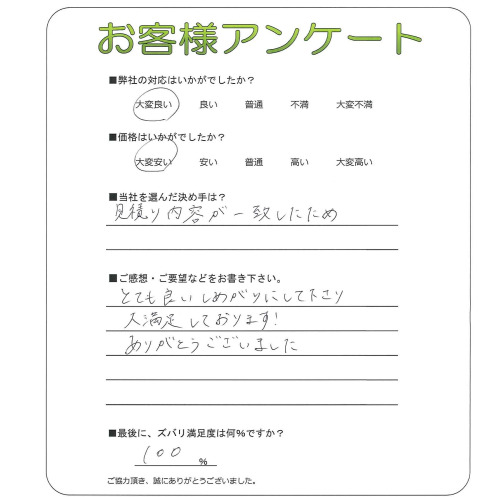 お客様アンケート
■弊社の対応はいかがでしたか？
大変良い 良い 普通 不満 大変不満
■価格はいかがでしたか？
大変安い 安い 普通 高い 大変高い
■当社を選んだ決め手は？
見積り内容が一致したため
■ご感想・ご要望などをお書き下さい。
とても良いしめがりにして下さり
大満足しております!
ありがとうございました
■最後に、ズバリ満足度は何％ですか？
100 %
ご協力頂き、誠にありがとうございました。